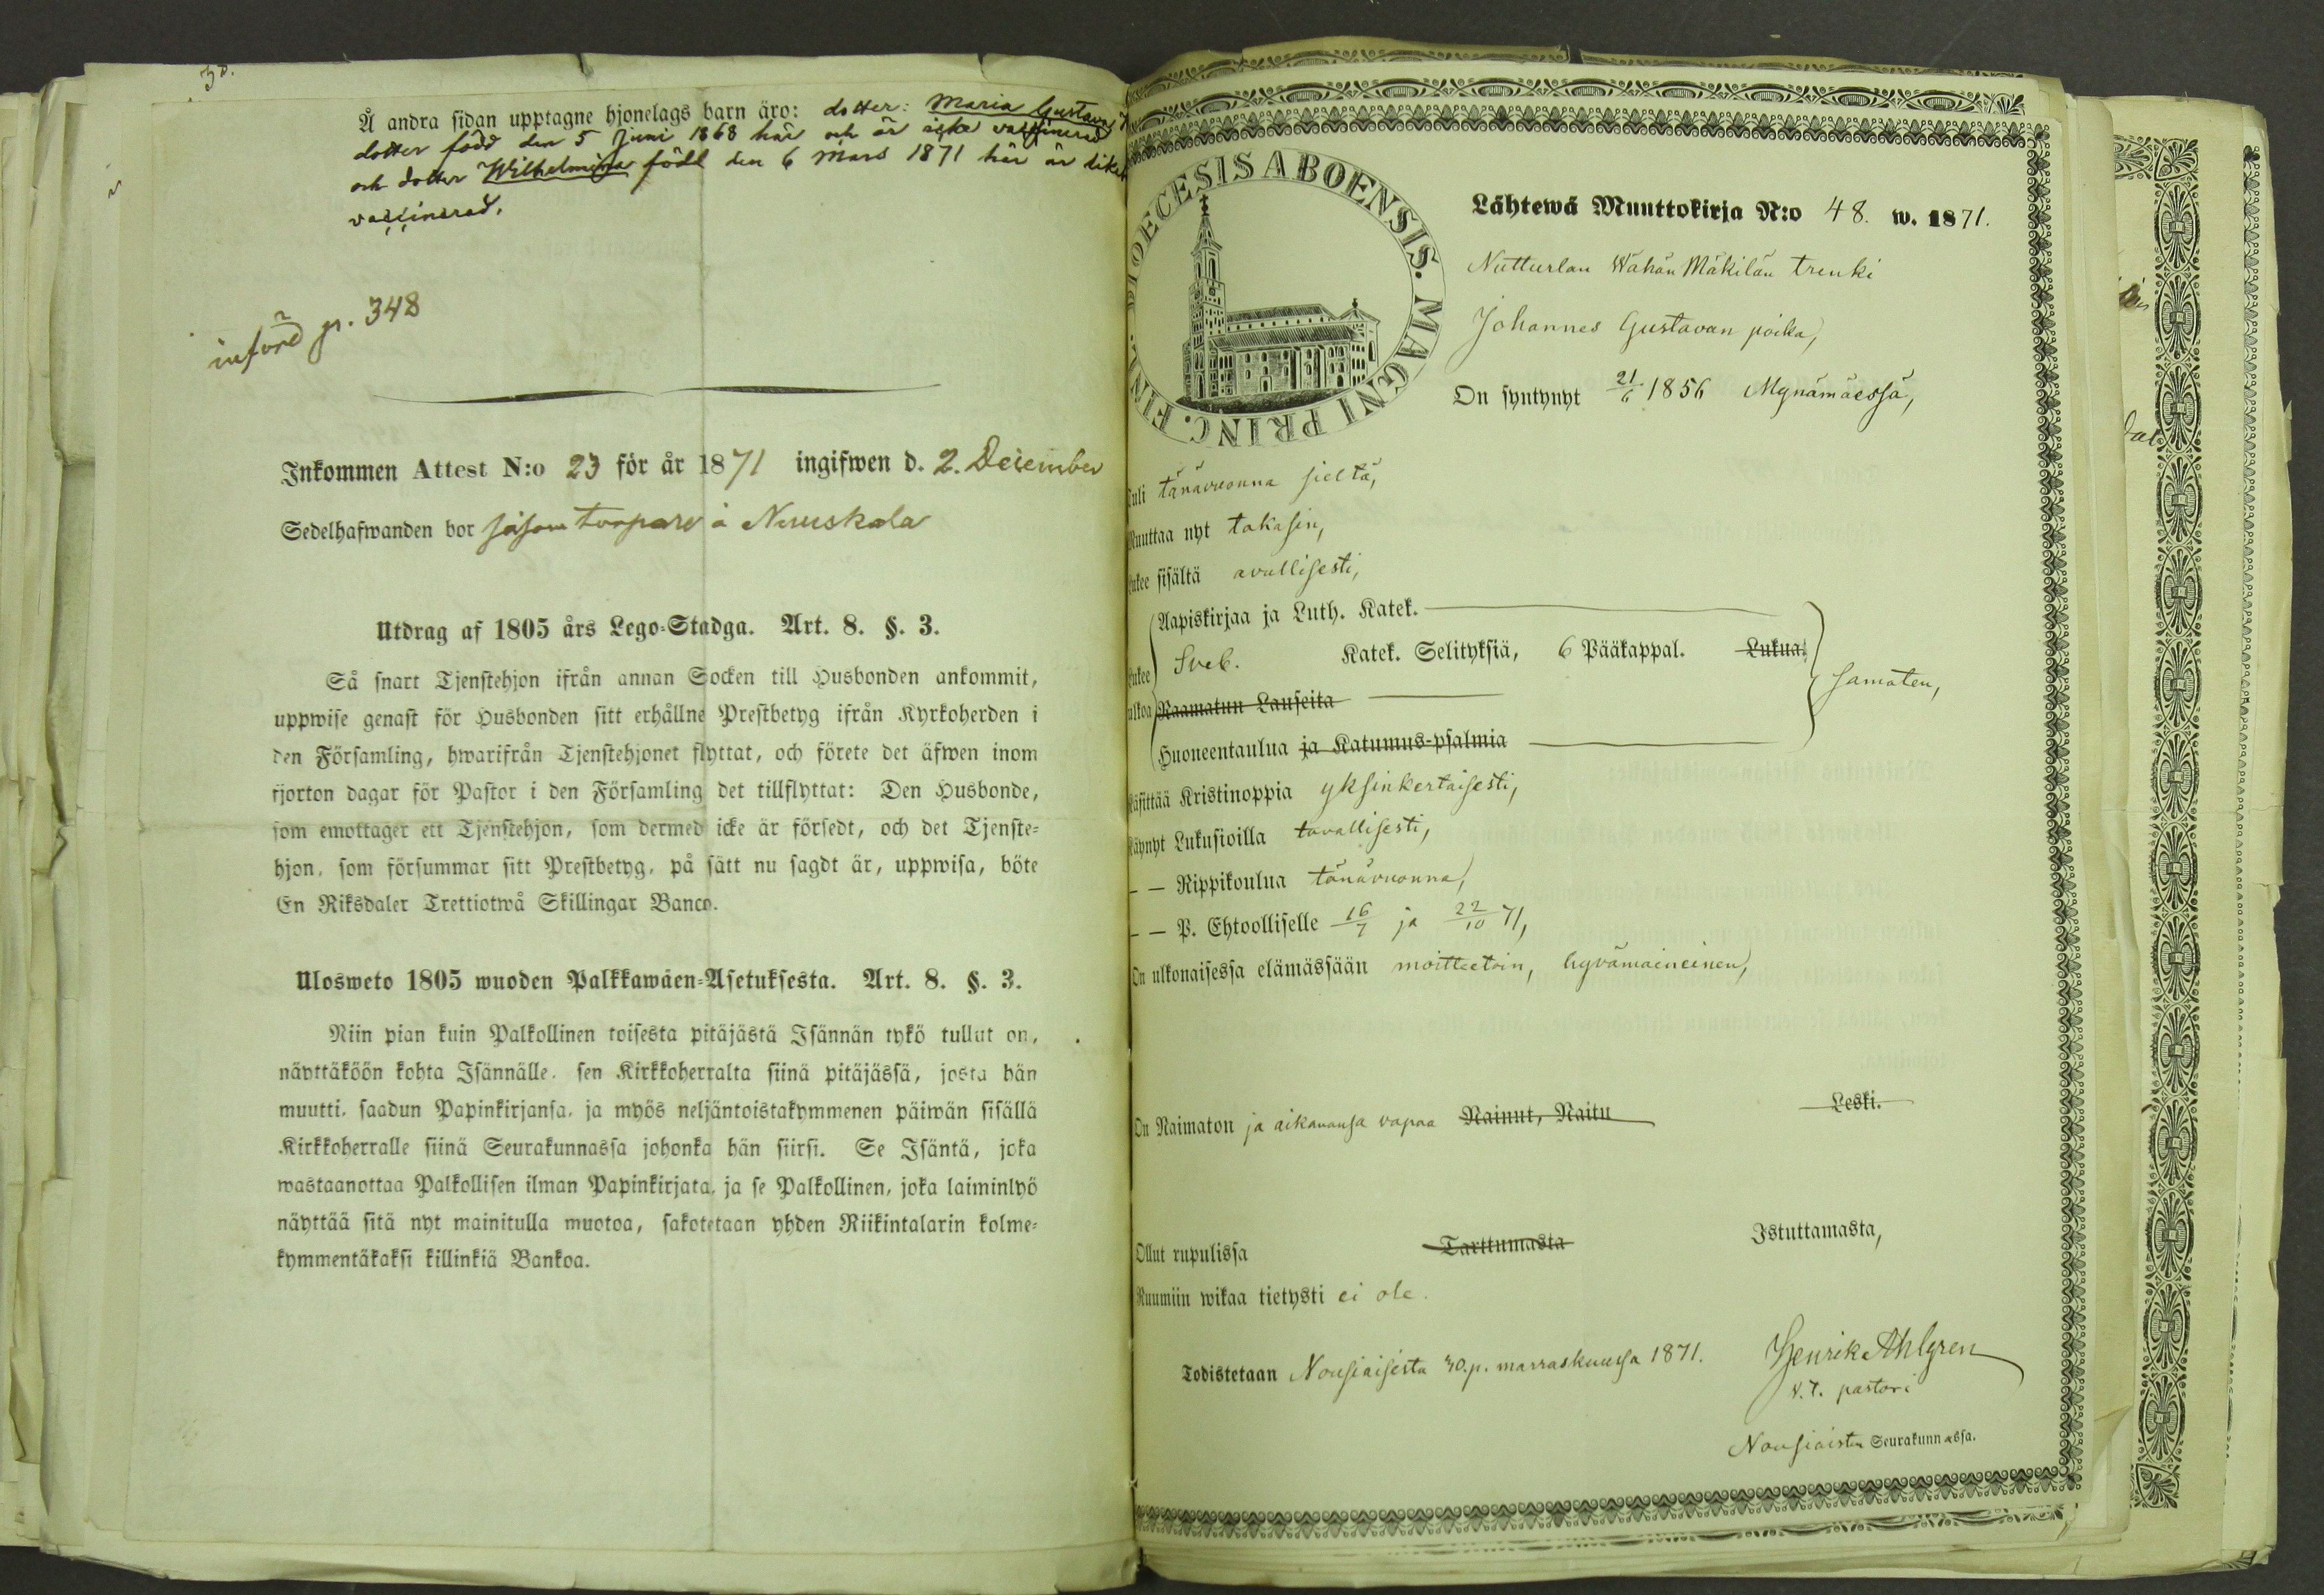 30.
Å andra sidan upptagne hjonelags barn äro: dotter: Maria Gustava
dotter född den 5 Juni 1868 här och är icke vaccinerad
och dotter Wilhelmina född den 6 Mars 1871 här är likes
vaccinerad.
införd p. 348
Inkommen Attest N:o 23 för år 1871 ingifwen d. 2. December
Sedelhafwanden bor såsom torpare å Nuuskala
Utdrag af 1805 års Lego-Stadga. Art. 8. §. 3.
Så snart Tjenstehjon ifrån annan Socken till Husbonden ankommit,
uppwise genast för Husbonden sitt erhållne Prestbetyg ifrån Kyrkoherden i
den Församling, hwarifrån Tjenstehjonet flyttat, och förete det äfwen inom
fjorton dagar för Pastor i den Församling det tillflyttat: Den Husbonde,
som emottager ett Tjenstehjon, som dermed icke är försedt, och det Tjenste-
hjon, som försummar sitt Prestbetyg, på sätt nu sagdt är, uppwisa, böte
En Riksdaler Trettiotwå Skillingar Banco.
Ulosweto 1805 wuoden Palkkawäen-Asetuksesta. Art. 8. §. 3.
Niin pian kuin Palkollinen toisesta pitäjästä Isännän tykö tullut on,
näyttäköön kohta Isännälle, sen Kirkkoherralta siinä pitäjässä, josta hän
muutti, saadun Papinkirjansa, ja myös neljäntoistakymmenen päiwän sisällä
Kirkkoherralle siinä Seurakunnassa johonka hän siirsi. Se Isäntä, joka
wastaanottaa Palkollisen ilman Papinkirjata, ja se Palkollinen, joka laiminlyö
näyttää sitä nyt mainitulla muotoa, sakotetaan yhden Riikintalarin kolme-
kymmentäkaksi killinkiä Bankoa.
DIOECESIS ABOENSIS. MAGNI PRINC. FINL.
Lähtewä Muuttokirja N:o 48. w. 1871.
Nutturlan Wähän Mäkilän trenki
Johannes Gustavan poika,
On syntynyt 21/6 1856 Mynämäessä,
Tuli tänävuonna sieltä,
Muuttaa nyt takasin,
Lukee sisältä avullisesti,
Aapiskirjaa ja Luth. Katek.
Lukee Sveb. Katek. Selityksiä, 6 Pääkappal. Lukua, samaten,
ulkoa Raamatun Lauseita
Huoneentaulua ja Katumus-psalmia
Käsittää Kristinoppia yksinkertaisesti,
Käynyt Lukusioilla tavallisesti,
— — Rippikoulua tänävuonna,
— — P. Ehtoolliselle 16/7 ja 22/10 71,
On ulkonaisessa elämässään moitteetoin, hyvämaineinen,
On Naimaton ja aikanansa vapaa Nainut, Naitu Leski.
Ollut rupulissa Tarttumasta Istuttamasta,
Ruumiin wikaa tietysti ei ole.
Todistetaan Nousiaisista 30. p. marraskuussa 1871. Henrik Ahlgren
v.t. pastori
Nousiaisten Seurakunnassa.